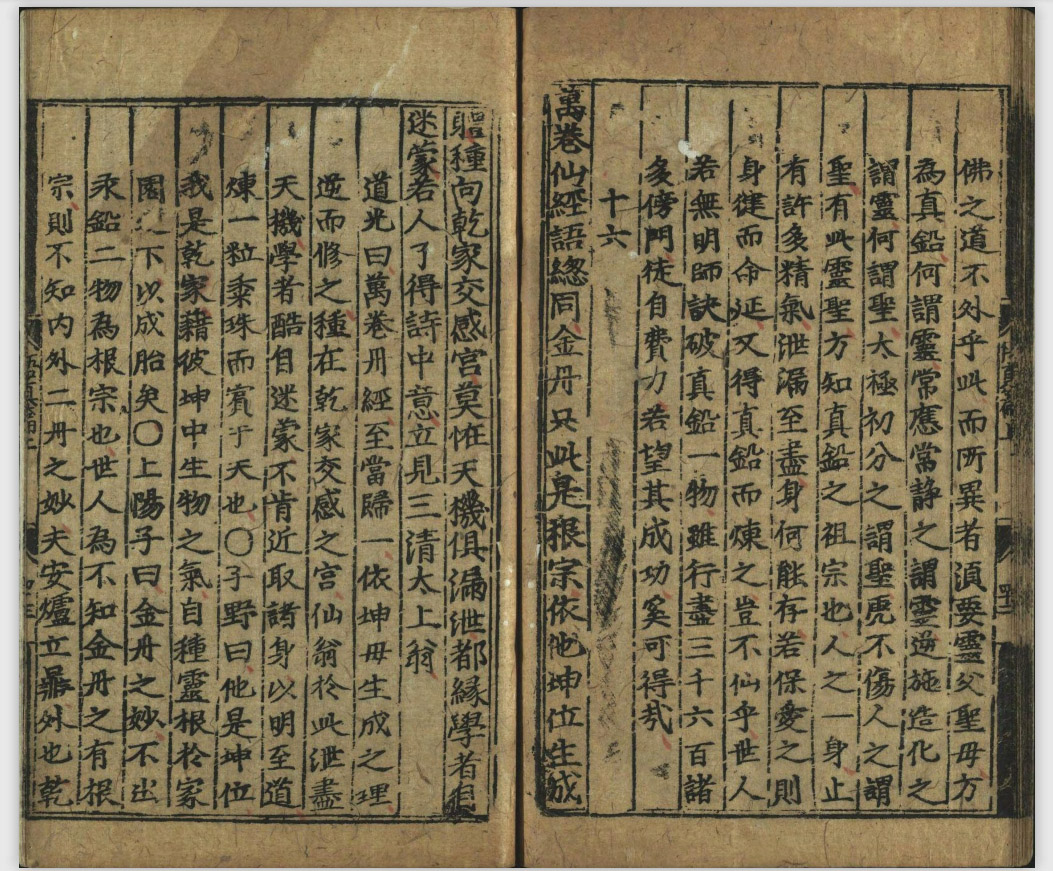 佛之道不外乎此而所異者須要靈父聖母方
為真鉛何謂靈常應常静之謂靈逆施造化之
謂靈何謂聖太極初分之謂聖虎不傷人之謂
聖有此靈聖方知真鉛之祖宗也人之一身止
有許多精氣泄漏至盡身何能存若保愛之則
身健而命延又得真鉛而煉之豈不仙乎世人
若無明師訣破真鉛一物雖行盡三千六百諸
多傍門徒自費力若望其成功奚可得㢤
十六
萬卷仙經語緫同金丹只此是根宗依他坤位生成
軆種向乾家交感宮莫怪天機俱漏泄都縁學者自
迷蒙若人了得詩中意立見三清太上翁
道光曰萬卷丹經至當歸一依坤母生成之理
逆而修之種在乾家交感之宮仙翁於此泄盡
天機學者酷自迷蒙不肯近取諸身以明至道
煉一粒黍珠而賓于天也〇子野曰他是坤位
我是乾家藉彼坤中生物之氣自種靈根於家
園 下以成胎矣〇上陽子曰金丹之妙不出
汞鉛二物為根宗也世人為不知金丹之有根
宗則不知内外二丹之妙夫安爐立鼎外也乾